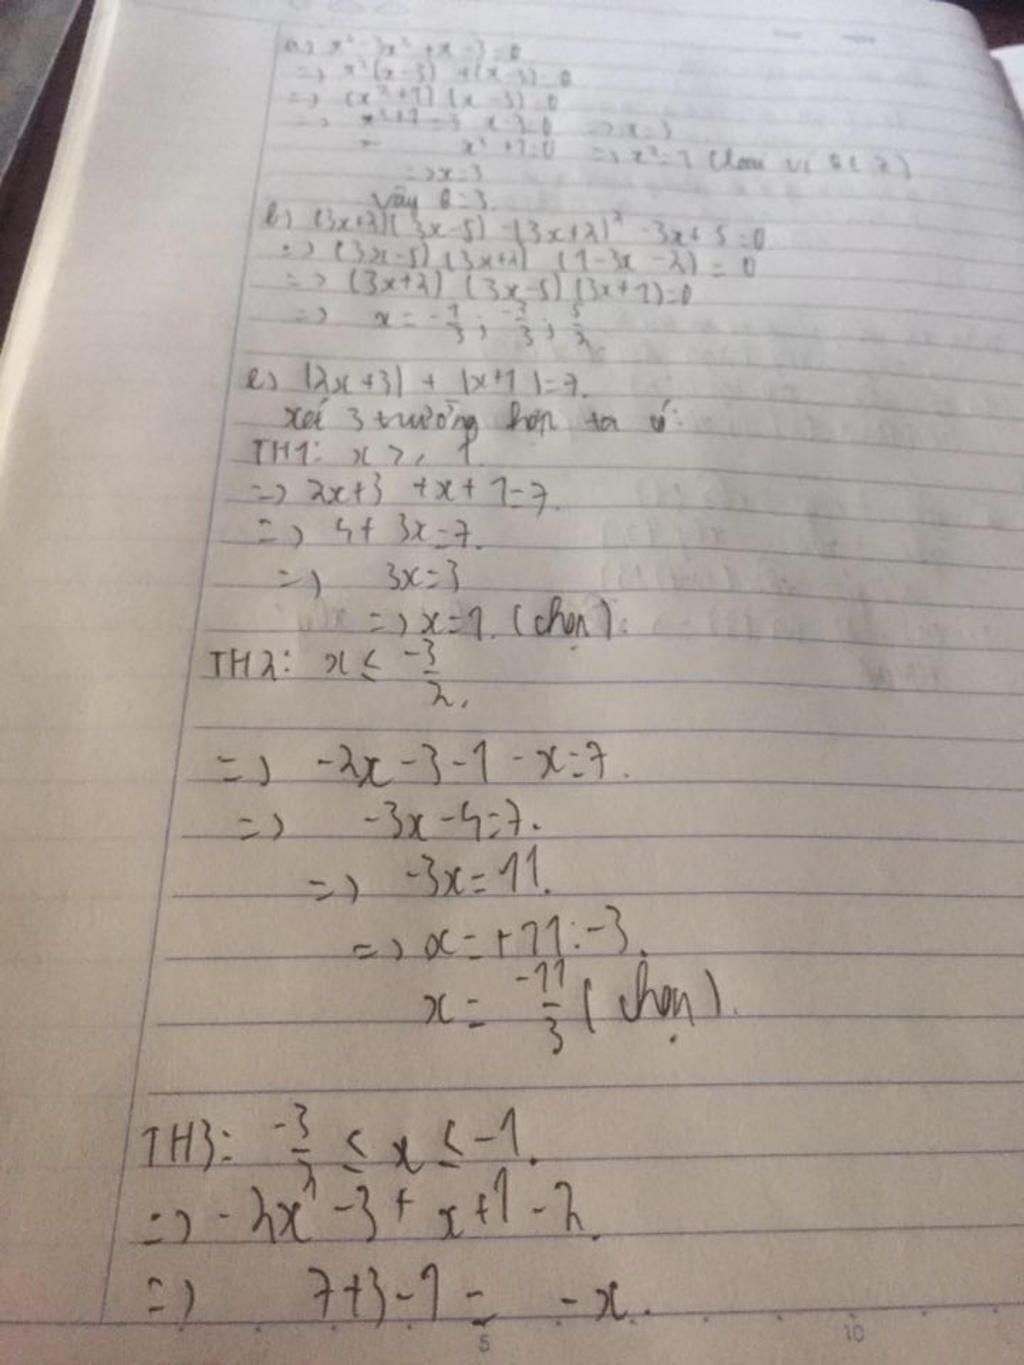 a) x³ - 3x² + x - 3 = 0
=> x²(x - 3) + (x - 3) = 0
=> (x² + 1) (x - 3) = 0
=> x - 3 = 0 => x = 3
x² + 1 = 0 => x² = -1 (loại vì
=> x = 3
Vậy = 3.
b) (3x+2)(3x-5) - (3x+2)² - 3x + 5 = 0
=> (3x-5) (3x+2) (1 - 3x - 2) = 0
=> (3x+2) (3x-5) (3x+1) = 0
=> x = -1/3 ; -2/3 ; 5/3
e) |2x + 3| + |x + 1| = 7.
xét 3 trường hợp ta có:
TH1: x ≥ 1.
=> 2x + 3 + x + 1 = 7.
=> 4 + 3x = 7.
=> 3x = 3
=> x = 1. (chọn).
TH2: x ≤ -3/2.
=> -2x - 3 - 1 - x = 7.
=> -3x - 4 = 7.
=> -3x = 11.
=> x = +11 : -3.
x = -11/3 (chọn).
TH3: -3/2 ≤ x ≤ -1.
=> -2x - 3 + x + 1 - 2.
=> 7 + 3 - 1 = - x.
5 10